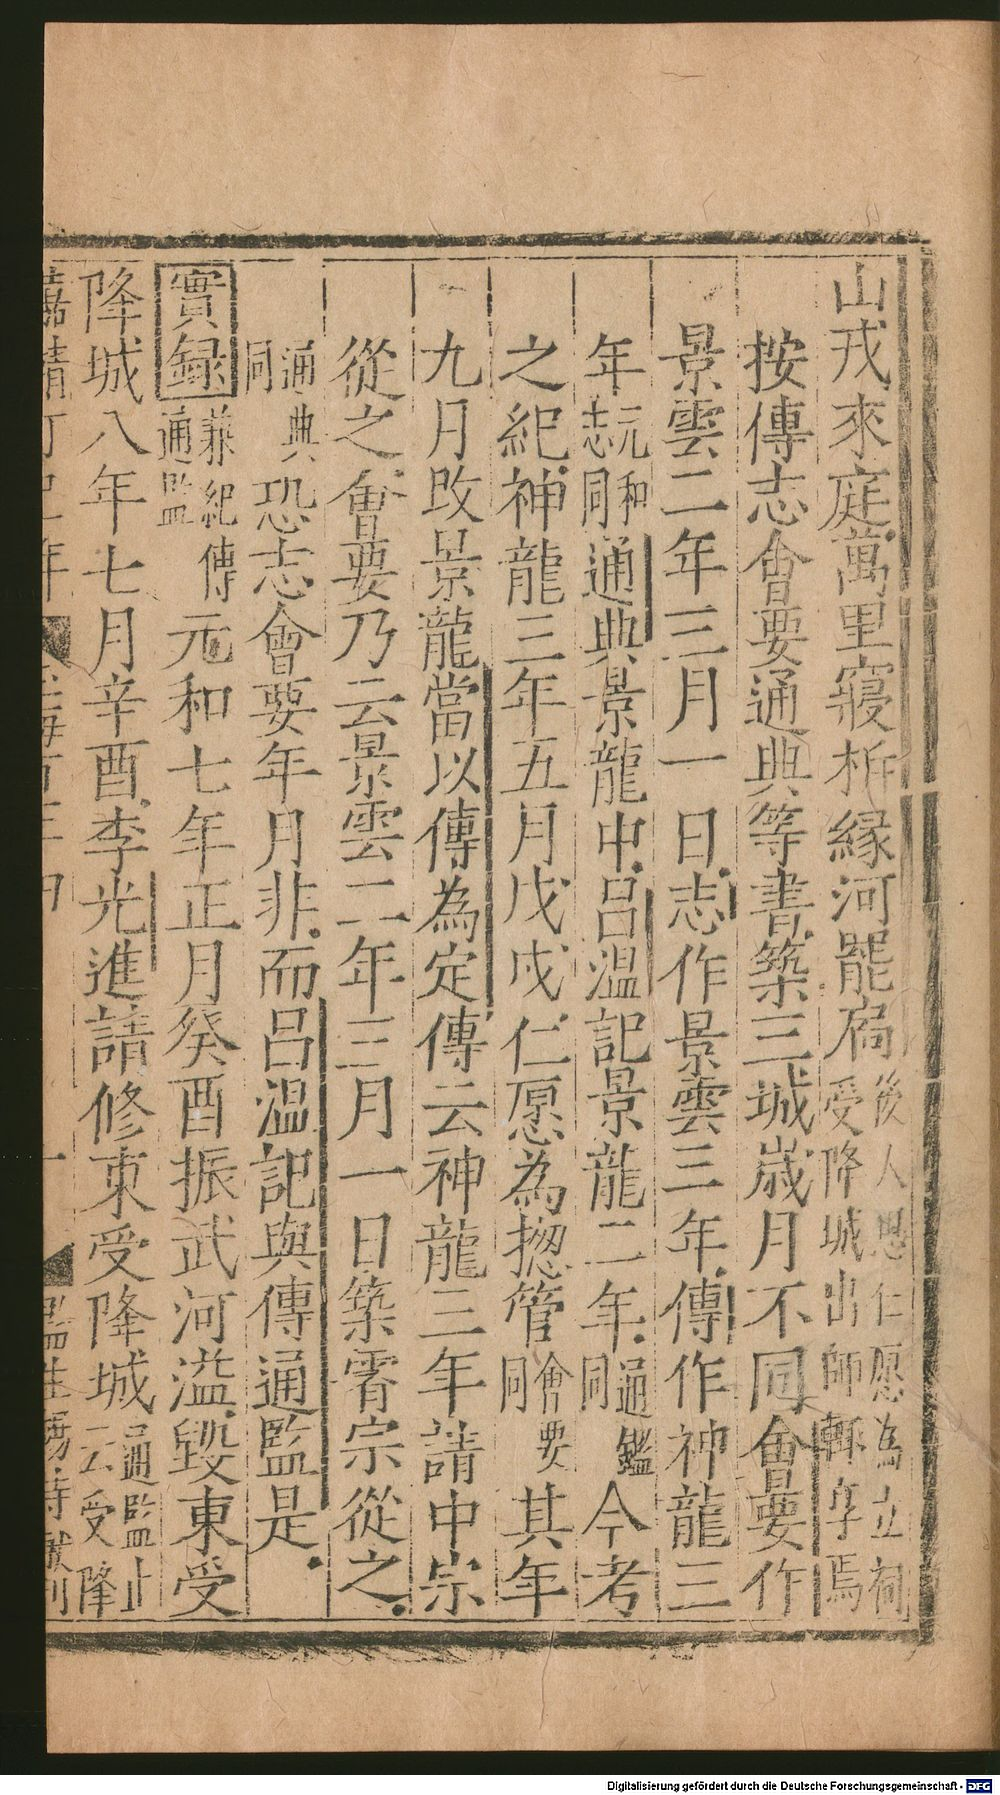 山戎來庭萬里寢柝縁河罷扃後人思仁愿為立祠受降城出師輙享焉
按傳志會要通典等書築三城歳月不同會要作
景雲二年三月一日志作景雲三年傳作神龍三
年元和志同通典景龍中呂溫記景龍二年通鑑同今考
之紀神龍三年五月戊戌仁愿為揔管會要同其年
九月改景龍當以傳為定傳云神龍三年請中宗
從之會要乃云景雲二年三月一日築睿宗從之
通典同恐志會要年月非而呂溫記與傳通監是
實録兼紀傳通監元和七年正月癸酉振武河溢毀東受
降城八年七月辛酉李光進請修東受降城通監止云受降
Digitalisierung gefördert durch die Deutsche Forschungsgemeinschaft - DFG